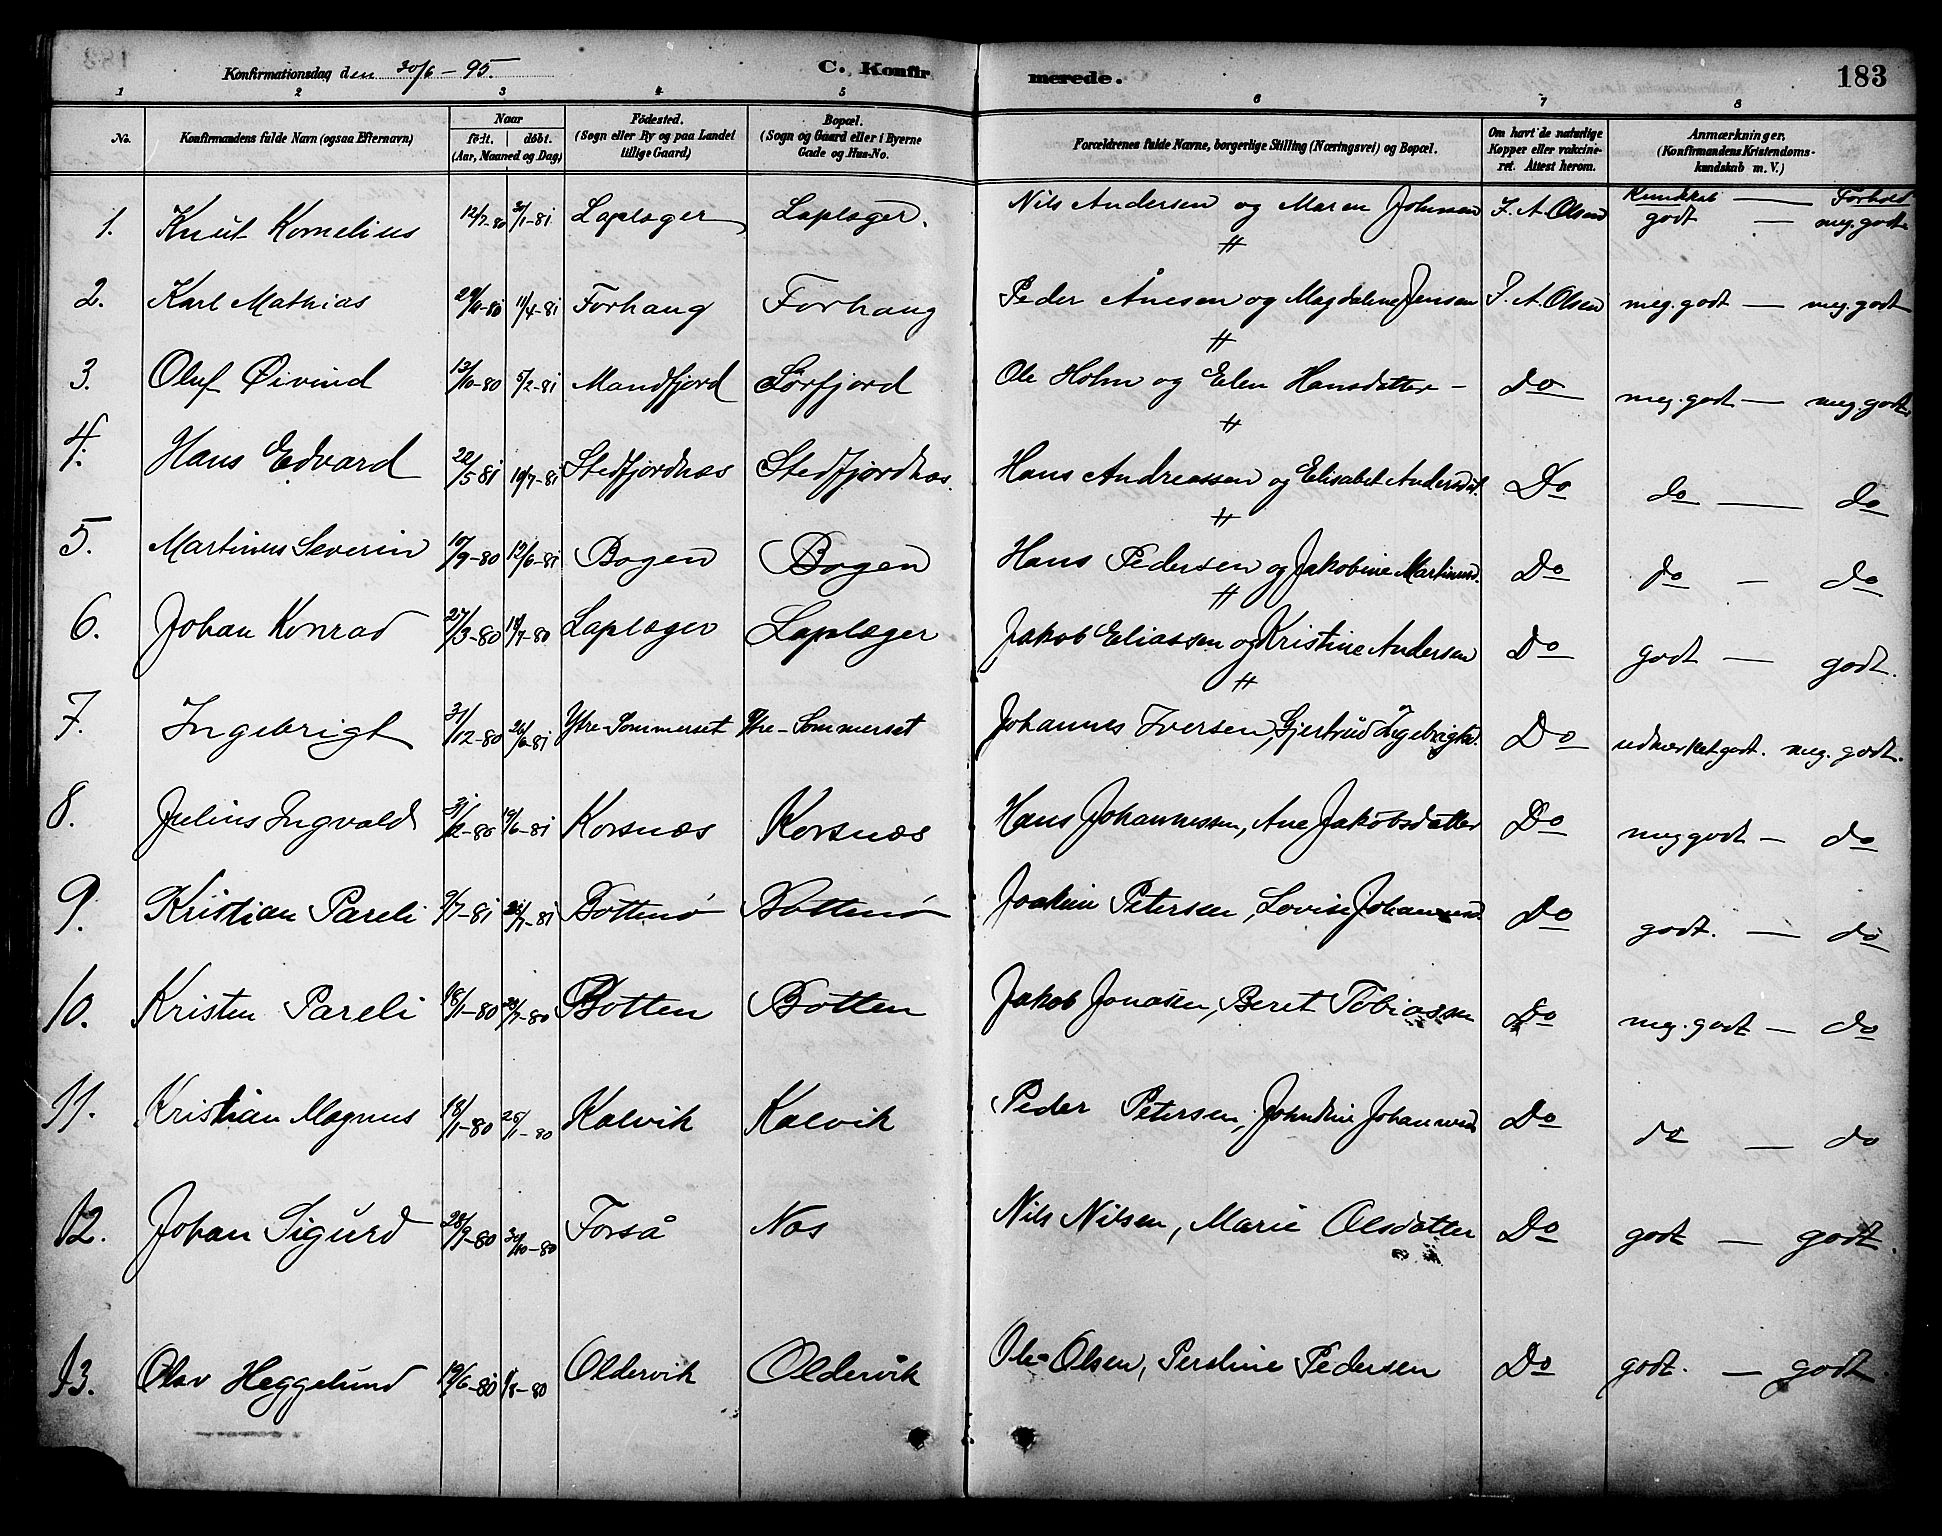 Konfirmationsdag den 30/6 - 95. C. Konfirmerede. 183
1 2 3 4 5 6 7 8
No. Konfirmandens fulde Navn (ogsaa Efternavn) Naar født. døbt. (Aar, Maaned og Dag) Fødested. (Sogn eller By og paa Landet tillige Gaard) Bopæl. (Sogn og Gaard eller i Byerne Gade og Hus-No. Forældrenes fulde Navne, borgerlige Stilling (Næringsvei) og Bopæl. Om havt de naturlige Kopper eller vakcineret. Attest herom. Anmærkninger. (Konfirmandens Kristendomskundskab m. V.)
Kundskab — Forhold
1. Knut Kornelius 12/7-80 3/1-81 Laplæger Laplæger. Nils Andersen og Maren Johnsen J. A. Olsen godt — meg. godt
2. Karl Mathias 29/11-80 11/4-81 Forhaug Forhaug Peder Ånesen og Magdalene Jensen J. A. Olsen meg. godt — meg. godt
3. Oluf Øivind 13/10-80 5/2-81 Mandfjord Sørfjord Ole Holm og Elen Hansdatter - do meg. godt — meg. godt
4. Hans Edvard 22/5 81 10/7-81 Stedfjordnæs Stedfjordnæs. Hans Andreassen og Elisabet Andersdat. Do do — do
5. Martinus Severin 10/9-80 12/6-81 Bogen Bogen Hans Pedersen og Jakobine Martinusd. Do do — do
6. Johan Konrad 27/3-80 18/7-80 Laplæger Laplæger Jakob Eliassen og Kristine Andersen Do godt — godt.
7. Ingebrigt 31/12-80 26/6-81 Ytre-Sommerset Ytre-Sommerset Johannes Iversen, Gjertrud Ingebrigtsd. Do udmerket godt. meg. godt.
8. Julius Ingvald 31/12-80 19/6-81 Korsnæs Korsnæs Hans Johannessen, Ane Jakobsdatter Do meg godt — do
9. Kristian Pareli 9/7-81 /7-81 Bottenø Bottenø Joakim Petersen, Lovise Johannesd. Do godt. — do
10. Kristen Pareli 18/1-80 /7-80 Botten Botten Jakob Jonassen, Beret Tobiassen Do meg. godt — do
11. Kristian Magnus 18/1-80 25/1-80 Kalvik Kalvik Peder Petersen, Johan Do do — do
12. Johan Sigurd 28/9-80 30/10-80 Forså Nes Nils Nilsen, Marie Olsdatter Do godt — godt.
13. Olav Heggelund 19/6-80 1/8-80 Oldervik Oldervik Ole Olsen, Persline Pedersen Do godt. — godt.